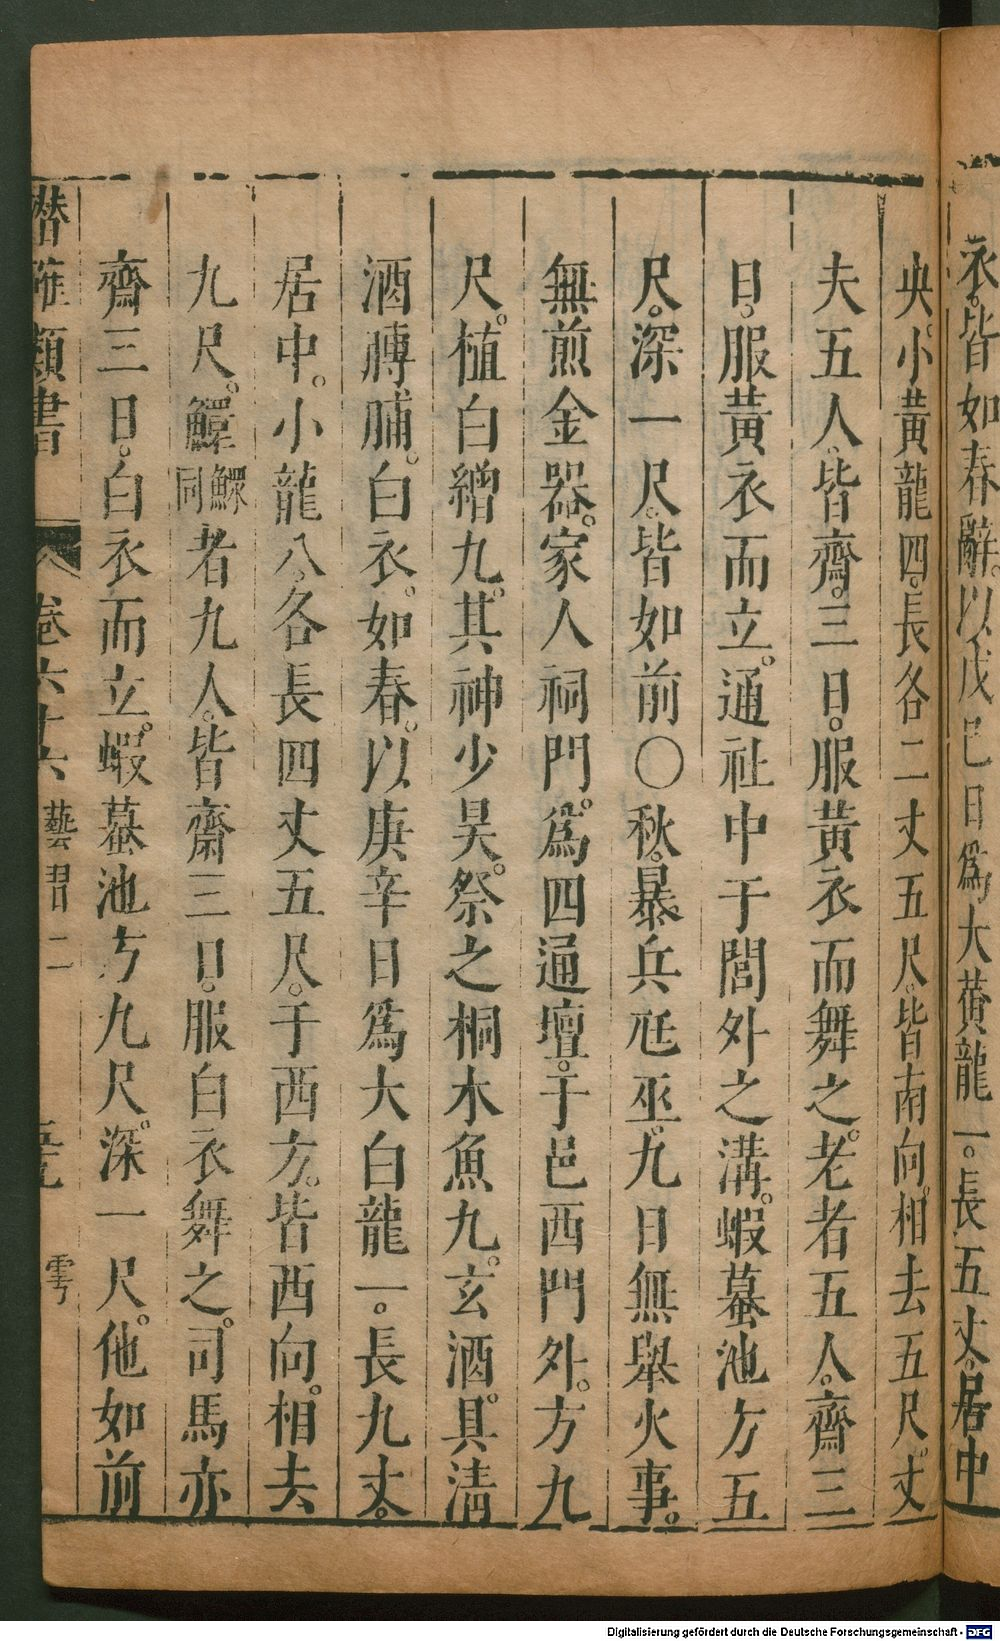 衣。皆如春辭。以戊巳日爲大黃龍一。長五丈。居中
央。小黃龍四。長各二丈五尺。皆南向。相去五尺。丈
夫五人。皆齋。三日。服黃衣而舞之。老者五人。齋三
日。服黃衣而立。通社中于閭外之溝。蝦蟇池方五
尺。深一尺。皆如前〇秋。暴兵尫巫。九日無舉火事。
無煎金器。家人祠門。爲四通壇。于邑西門外。方九
尺。植白繒九。其神少昊。祭之桐木魚九。玄酒。具清
酒膊脯。白衣。如春。以庚辛日爲大白龍一。長九丈。
居中。小龍八。各長四丈五尺。于西方。皆西向。相去
九尺。鱞鰥同者九人。皆齋三日。服白衣舞之。司馬亦
齋三日。白衣而立。蝦蟇池方九尺。深一尺。他如前
潛確類書 卷六十六 藝習二 雩
Digitalisierung gefördert durch die Deutsche Forschungsgemeinschaft - DFG